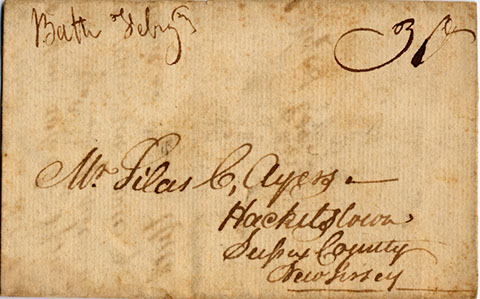 Bath Feby 3
30
Mr. Silas C, Ayers
Hacketstown
Sussex County
New Jersey